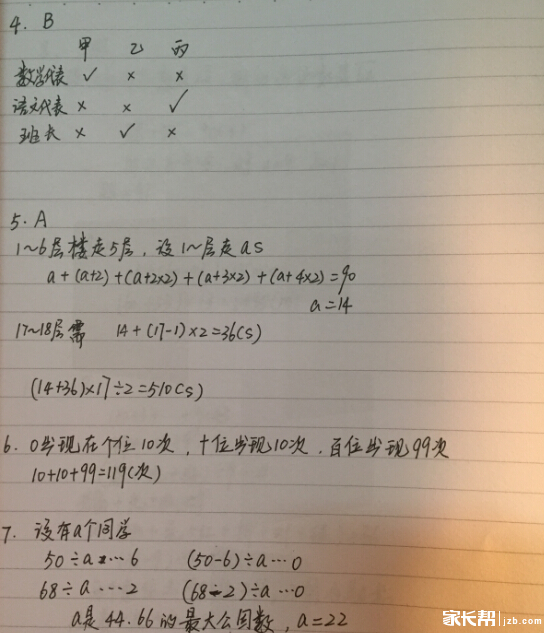 4. B
甲 乙 丙
数学代表 ✓ × ×
语文代表 × × ✓
班长 × ✓ ×
5. A
1~6层楼走5层，设1~层走as
a+(a+2)+(a+2×2)+(a+3×2)+(a+4×2)=90
a=14
17~18层需 14+(17-1)×2=36(s)
(14+36)×17÷2=510(s)
6. 0出现在个位10次，十位出现10次．百位出现99次
10+10+99=119(次)
7. 设有a个同学
50÷a…6 (50-6)÷a…0
68÷a…2 (68-2)÷a…0
a是44.66的最大公因数，a=22
家长帮 jzb.com